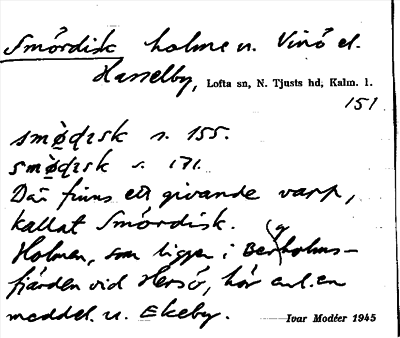 Smördisk holme u. Vinö el.
Hasselby, Lofta sn, N. Tjusts hd, Kalm. l.
151
smø̀ḍɪsk s. 155.
smø̀ḍɪsk s. 171.
Där finns ett givande varp,
kallat Smördisk.
Holmen, som ligger i Bergholms-
fjärden vid Hersö, hör enl. en
meddel. u. Ekeby.
Ivar Modéer 1945